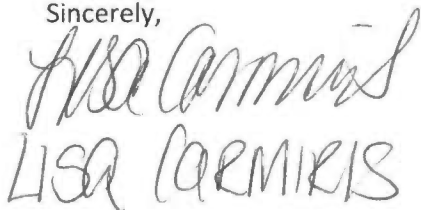 Sincerely,
Lisa Carmiris
LISA CARMIRIS